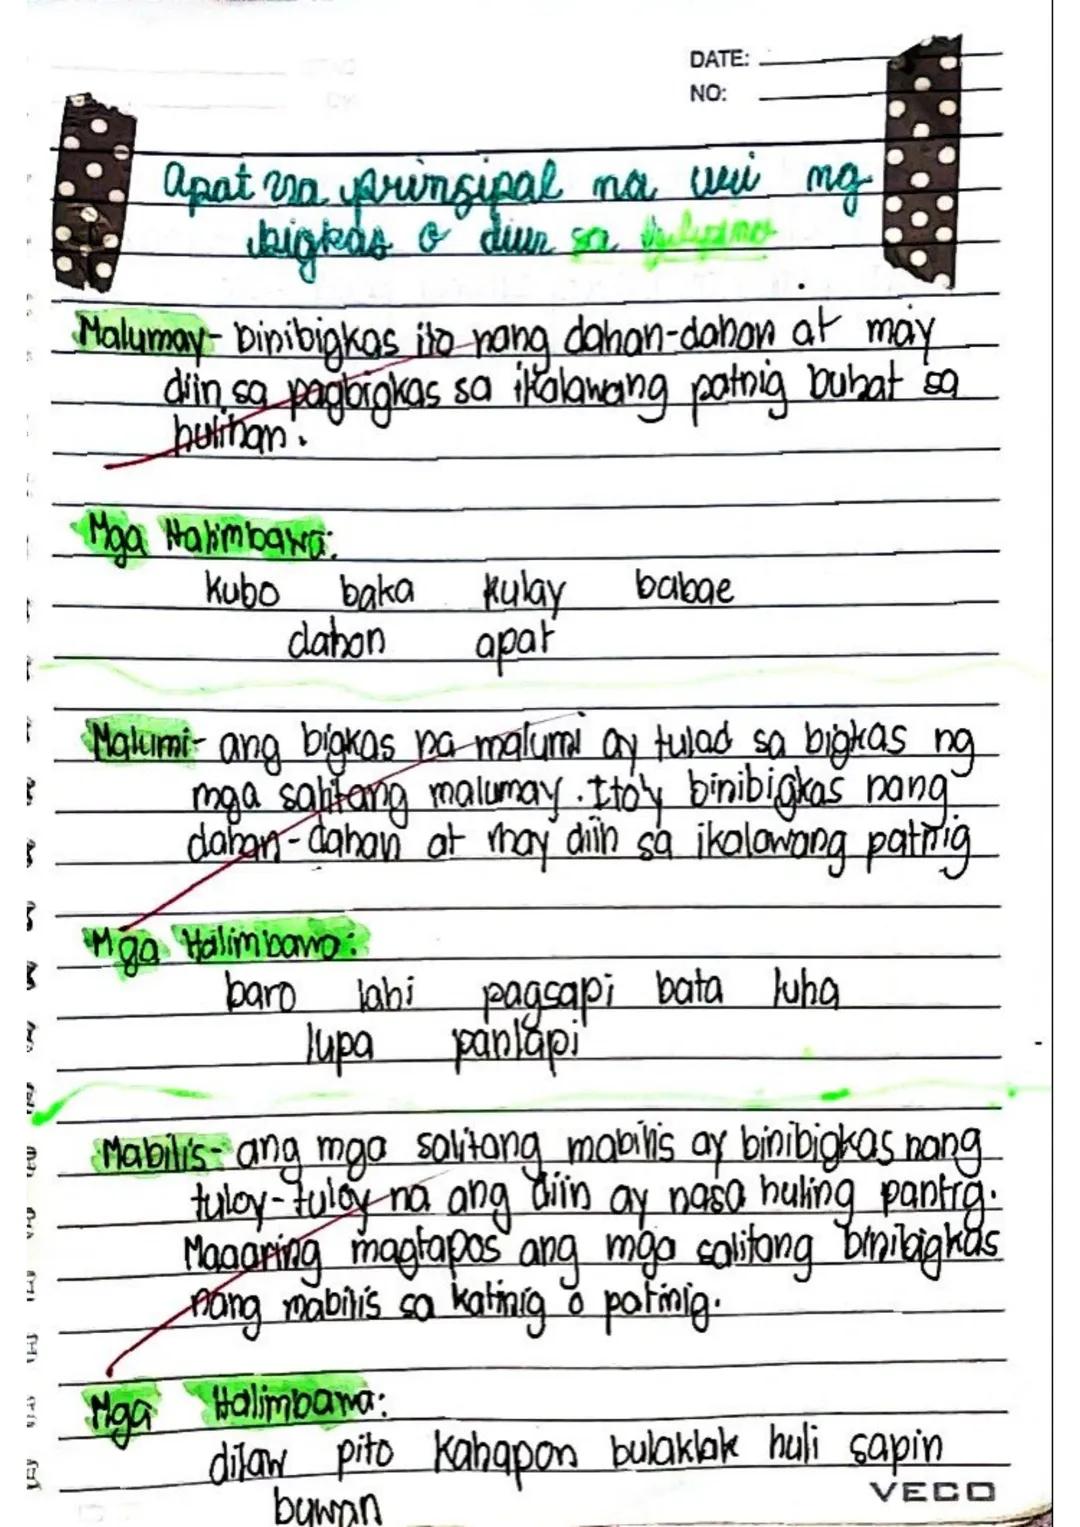 DATE:
NO:
Apat na prinsipal na uri ng
bigkas o diin sa Filipino
Malumay- binibigkas ito nang dahan-dahan at may
diin sa pagbigkas sa ikalawang patnig buhat sa
hulihan.
Mga Halimbawa:
kubo baka kulay babae
dahon apat
Malumi- ang bigkas na malumi ay tulad sa bigkas ng
mga salitang malumay. Ito'y binibigkas nang
dahan-dahan at may diin sa ikalawang patnig
Mga Halimbawa:
baro labi pagsapi bata luha
lupa panlapi
Mabilis- ang mga salitang mabilis ay binibigkas nang
tuloy-tuloy na ang diin ay nasa huling pantig.
Maaaring magtapos ang mga salitang binibigkas
nang mabilis sa katinig o patinig.
Mga Halimbawa:
dilaw pito kahapon bulaklak huli sapin
buwan
VECO